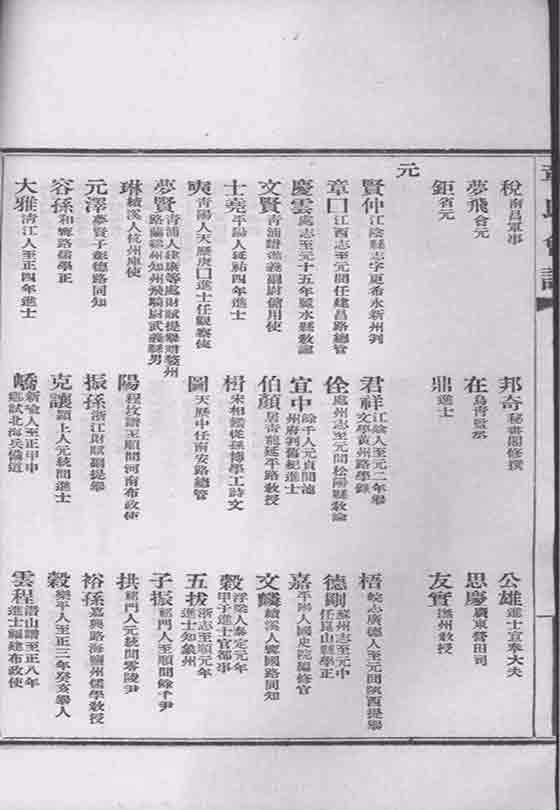 章氏會譜
稅 南昌軍事 邦奇 秘書閣修撰 公雄 進士宣奉大夫
夢飛 會元 在 烏青監鎮 思慶 廣東營田司
鉅 省元 鼎 進士 友實 撫州教授
元
賢仲 江陰縣志字更希永新州判 君祥 江陰人至元二年舉文學黃州路學錄 梧 皖志廣德人至元間陝西提舉
章口 江西志至元間任建昌路總管 佺 處州志至元間松陽縣教諭 德剛 蘇州志至元中任崑山縣學正
慶雲 處志至元十五年麗水縣教諭 宜中 餘千人元貞間池州府判舊紀進士 嘉 平陽人國史院編修官
文賢 青浦譜進義副尉儋用使 伯顏 居青龍延平路教授 文麟 績溪人寶國路同知
士堯 平陽人延祐四年進士 栟 宋相鑑從孫博學工詩文 穀 浮梁人泰定元年甲子進士官郎事
奭 青陽人天歷庚口進士任觀察使 圖 天歷中任南安路總管 五拔 浙志至順元年進士知象州
夢賢 青浦人建康等處財賦提舉贈婺州路蘭谿州知州飛騎尉武義縣男 陽 程坟譜至順間河南布政使 子振 祁門人至順間餘千尹
琳 績溪人杭州庫使 振孫 浙江財賦副提舉 拱 祁門人元統間零陵尹
元澤 夢賢子彰德路同知 克讓 潁上人元統間進士 裕孫 嘉興路海鹽州儒學教授
容孫 和寧路儒學正 穀 樂平人至正三年癸亥舉人
大雅 清江人至正四年進士 嶠 新喻人至正甲申鄉試北海兵備道 雲程 潛山譜至正八年進士福建布政使